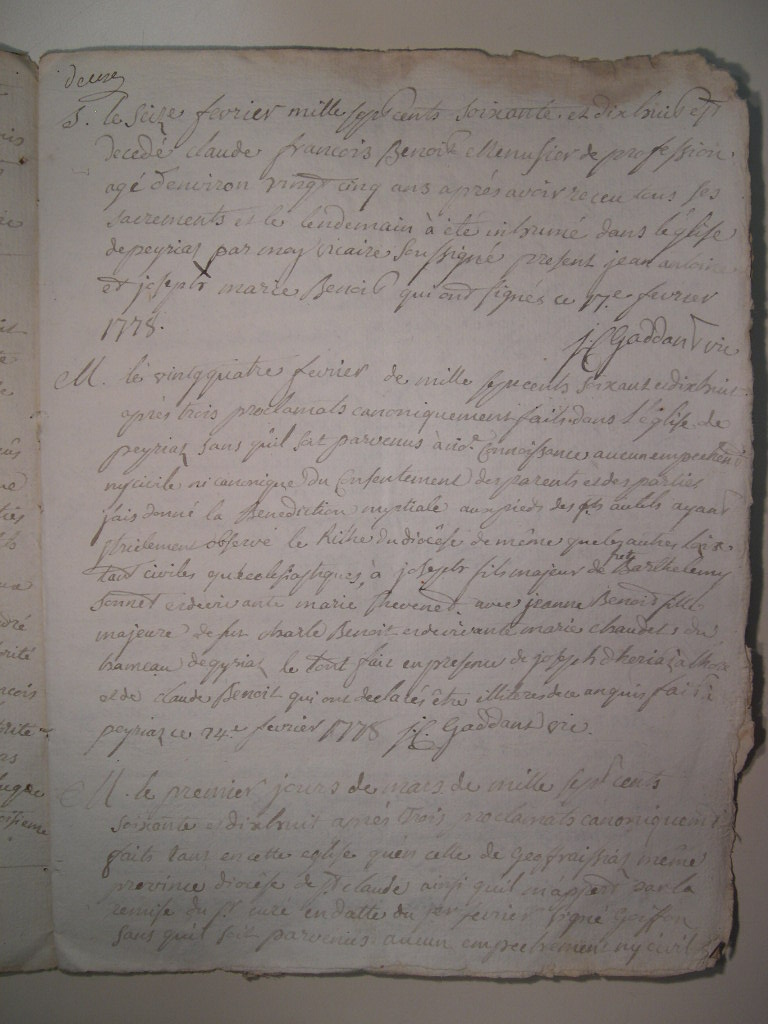 deux
S. le Seize fevrier mille sept cents soixante et dixhuit est
decedé claude francois Benoit Menusier de profession
agé d'environ vingt cinq ans aprés avoir receu tous ses
sacrements et le lendemain à été inhumé dans l'église
de peyriaz par moy vicaire soussigné present jean antoine
et joseph marie Benoit qui ont signés ce 17.e fevrier
1778.
j C Gaddant vic
M. le vingquatre fevrier de mille sept cents soixant et dixhuit
aprés trois proclamats canoniquement faits dans l'église de
peyriaz sans quil soit parvenus à connoissance aucun empechem
ny civile ni canonique du Consentement des parents et des parties
j'ais donné la Benediction nuptiale aux pieds des autels ayant
strictement observé le du diocése de même que les autres loix
tant civiles qu'eclesiastiques, à joseph fils majeur de Barthelemy
sonnet et de vivante marie thevenet avec jeanne Benoit fille
majeure de fut charle Benoit et de vivante marie chaudet du
hameau de gyriaz le tout fait en presence de joseph
et de claude Benoit qui ont declarés être illiteres de ce enquis fait à
peyriaz ce 24.e fevrier 1778 j C. Gaddant vic.
M. le premier jours de mars de mille sept cents
soixante et dixhuit aprés trois proclamats canoniquement
faits tant en cette eglise qu'en celle de Geofraissiat même
province diocése de St claude ainsi quil m'appert par la
remise du sr curé en datte du fevrier signé Goiffon
sans quil soit parvenus aucun empechement ny civil